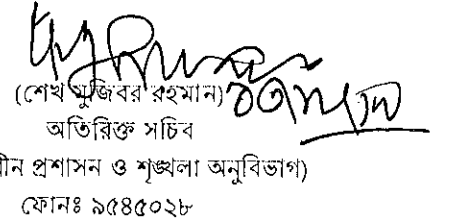 (শেখ মুজিবর রহমান)
অতিরিক্ত সচিব
ীন প্রশাসন ও শৃঙ্খলা অনুবিভাগ)
ফোনঃ ৯৫৪৫০২৮